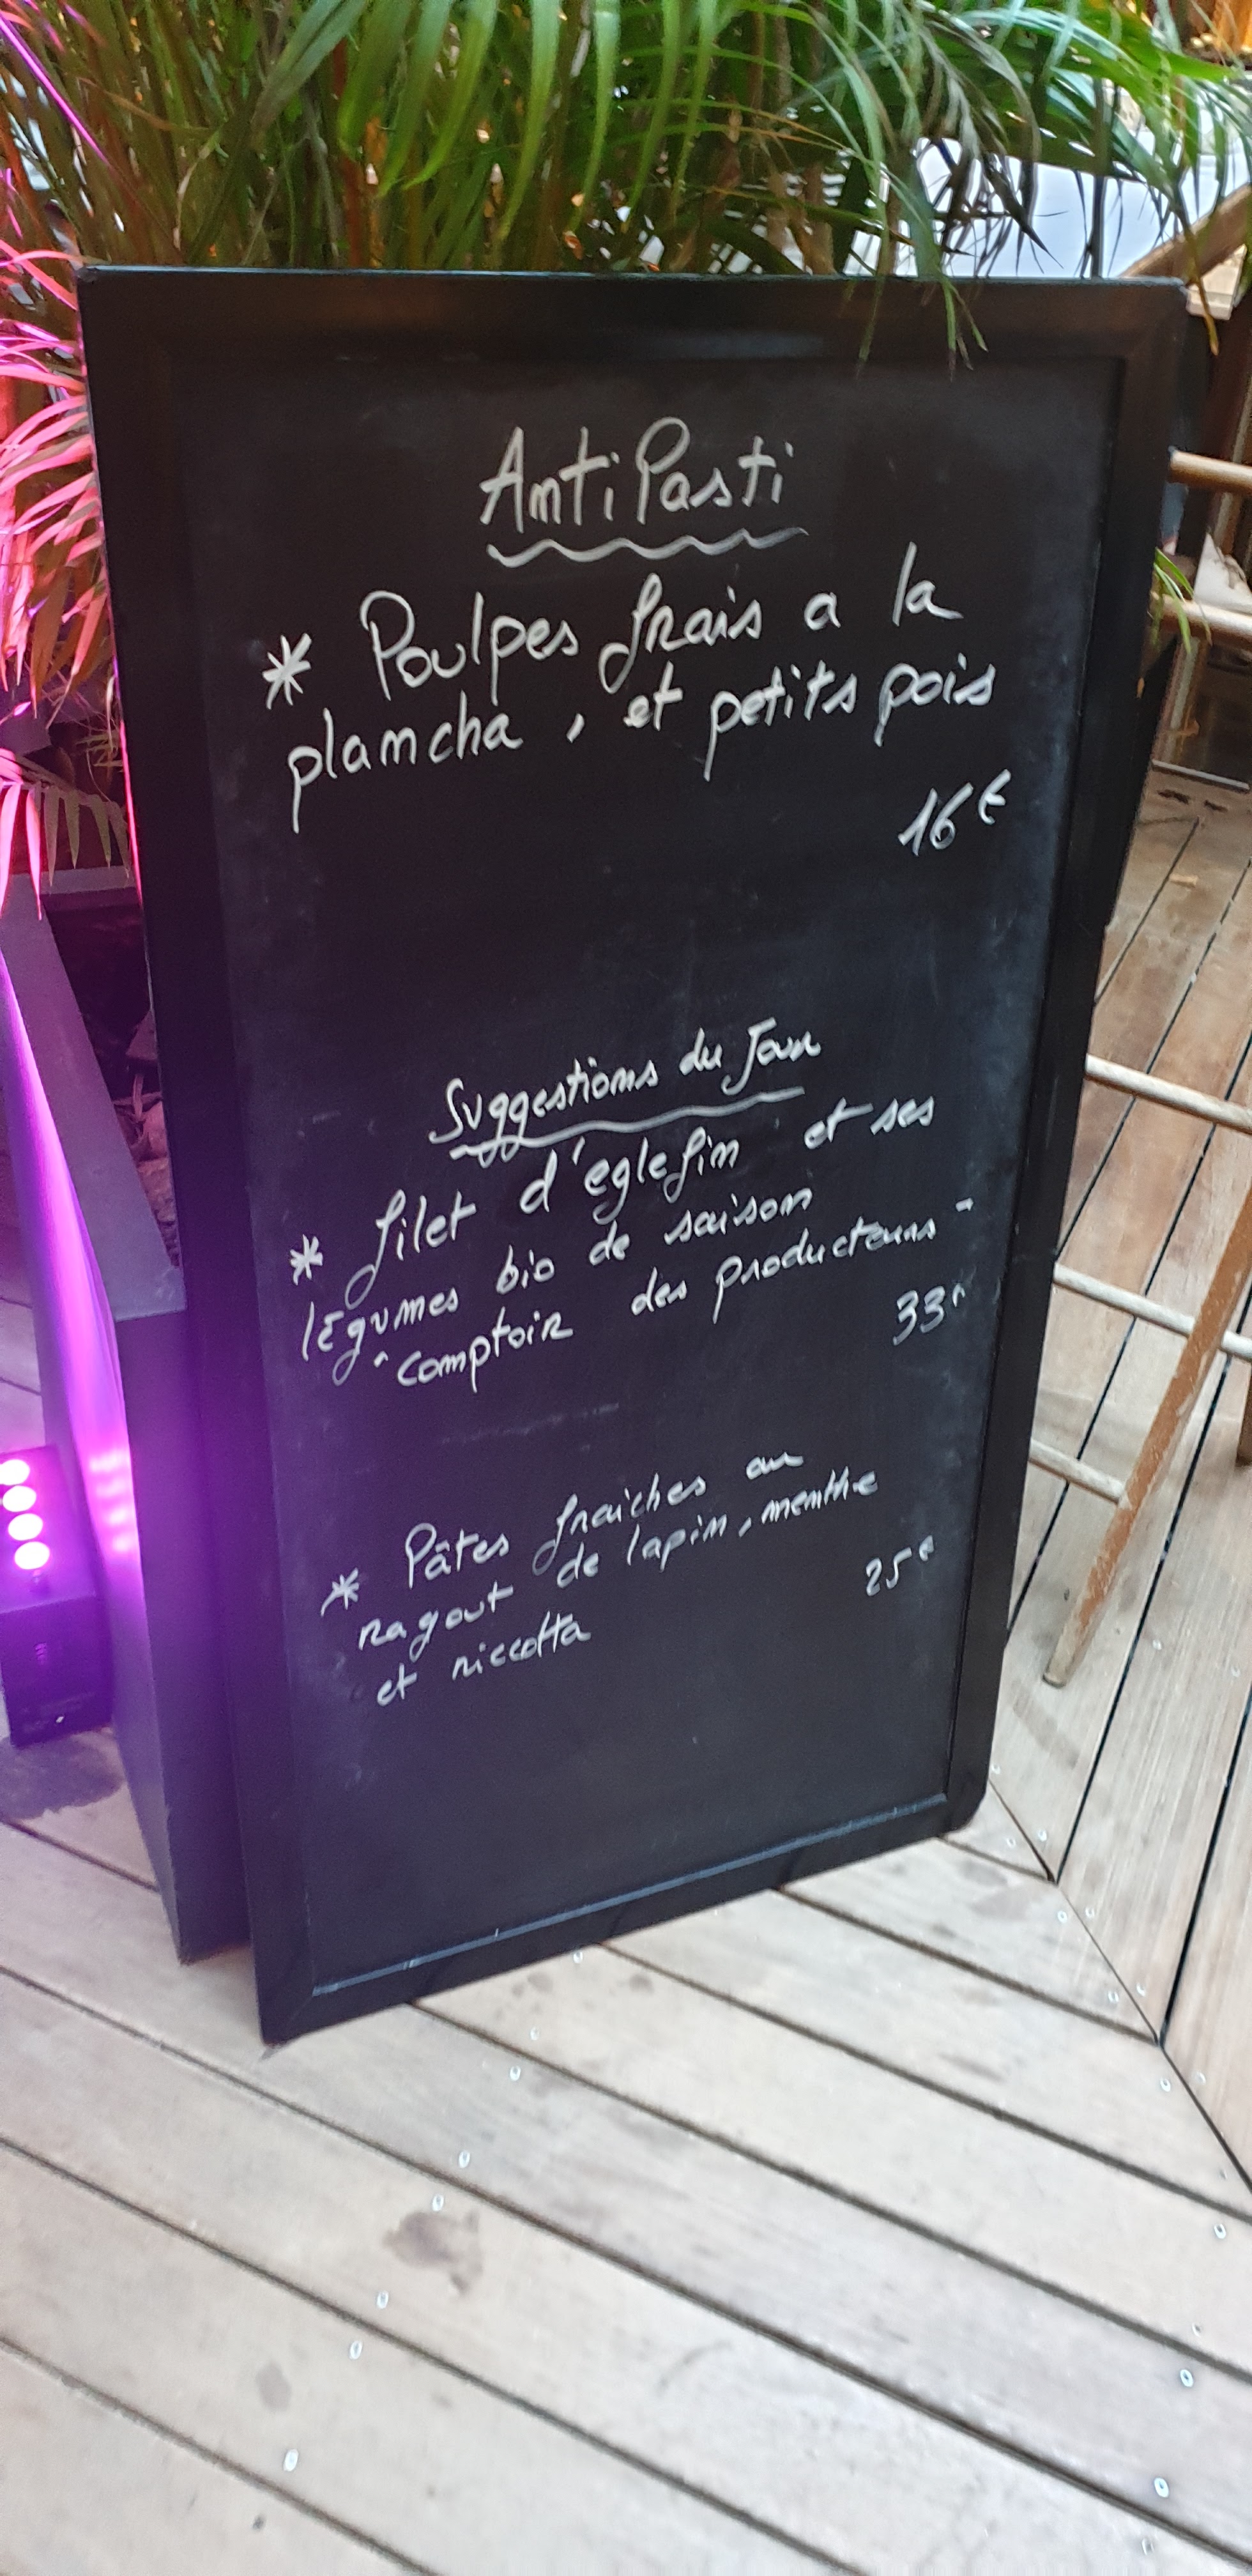 AntiPasti
* Poulpes frais a la
plancha, et petits pois
16€
Suggestions du Jour
* filet d'eglefin et ses
légumes bio de saison
"comptoir des producteurs"
33€
* Pâtes fraîches au
ragout de lapin, menthe
et riccotta
25€